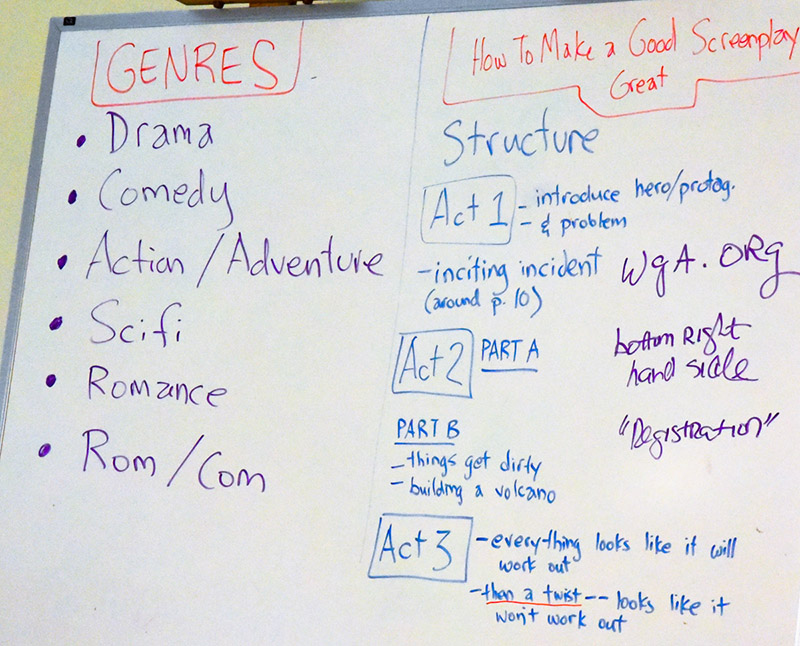 GENRES
• Drama
• Comedy
• Action / Adventure
• Scifi
• Romance
• Rom / Com
How To Make a Good Screenplay
Great
Structure
Act 1 - introduce hero/protag.
- & problem
- inciting incident
(around p. 10)
WgA.ORg
Act 2 PART A
bottom Right
hand side
PART B
- things get dirty
- building a volcano
"Registration"
Act 3 - everything looks like it will
work out
- than a twist -- looks like it
won't work out